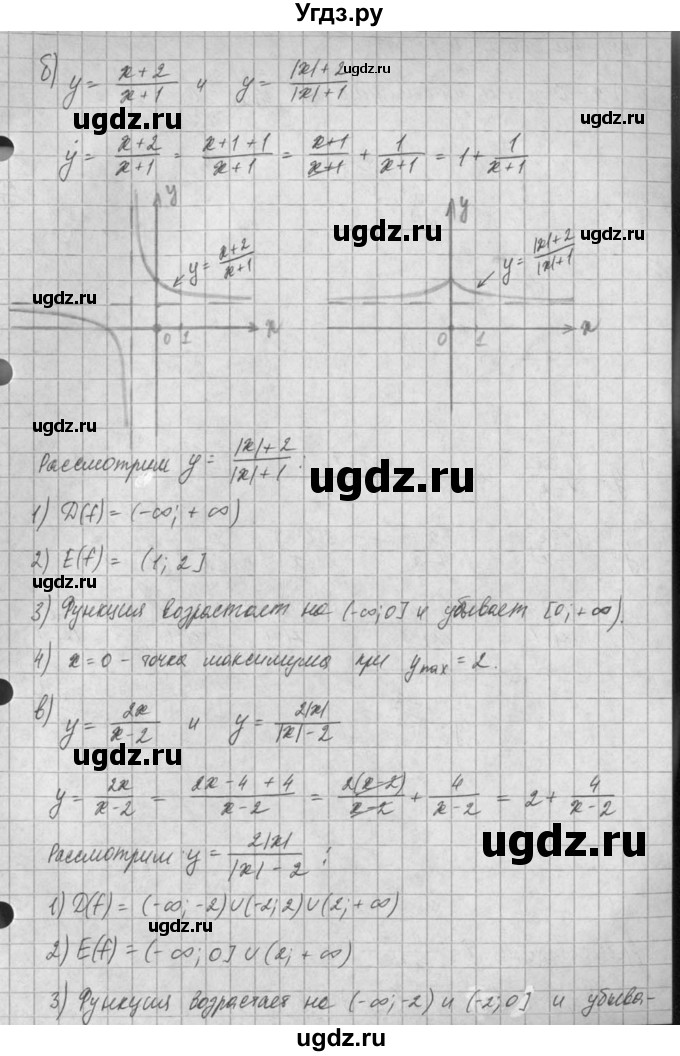 Угдз.ру
б) y = (x+2)/(x+1) и y = (|x|+2)/(|x|+1)
ugdz.ru ugdz.ru
y = (x+2)/(x+1) = (x+1+1)/(x+1) = (x+1)/(x+1) + 1/(x+1) = 1 + 1/(x+1)
ugdz.ru ugdz.ru
y y
y = (x+2)/(x+1) y = (|x|+2)/(|x|+1)
ugdz.ru
0 1 x 0 1 x
ugdz.ru
Рассмотрим y = (|x|+2)/(|x|+1) :
ugdz.ru
1) D(f) = (-∞; +∞)
2) E(f) = (1; 2]
ugdz.ru
3) Функция возрастает на (-∞; 0] и убывает [0; +∞).
4) x = 0 - точка максимума при y max = 2.
ugdz.ru
в) y = 2x/(x-2) и y = 2|x|/(|x|-2)
ugdz.ru
y = 2x/(x-2) = (2x-4+4)/(x-2) = 2(x-2)/(x-2) + 4/(x-2) = 2 + 4/(x-2)
ugdz.ru
Рассмотрим y = 2|x|/(|x|-2) :
ugdz.ru
1) D(f) = (-∞; -2)∪(-2; 2)∪(2; +∞)
2) E(f) = (-∞; 0] ∪ (2; +∞)
ugdz.ru ugdz.ru
3) Функция возрастает на (-∞; -2) и (-2; 0] и убыва-
ugdz.ru